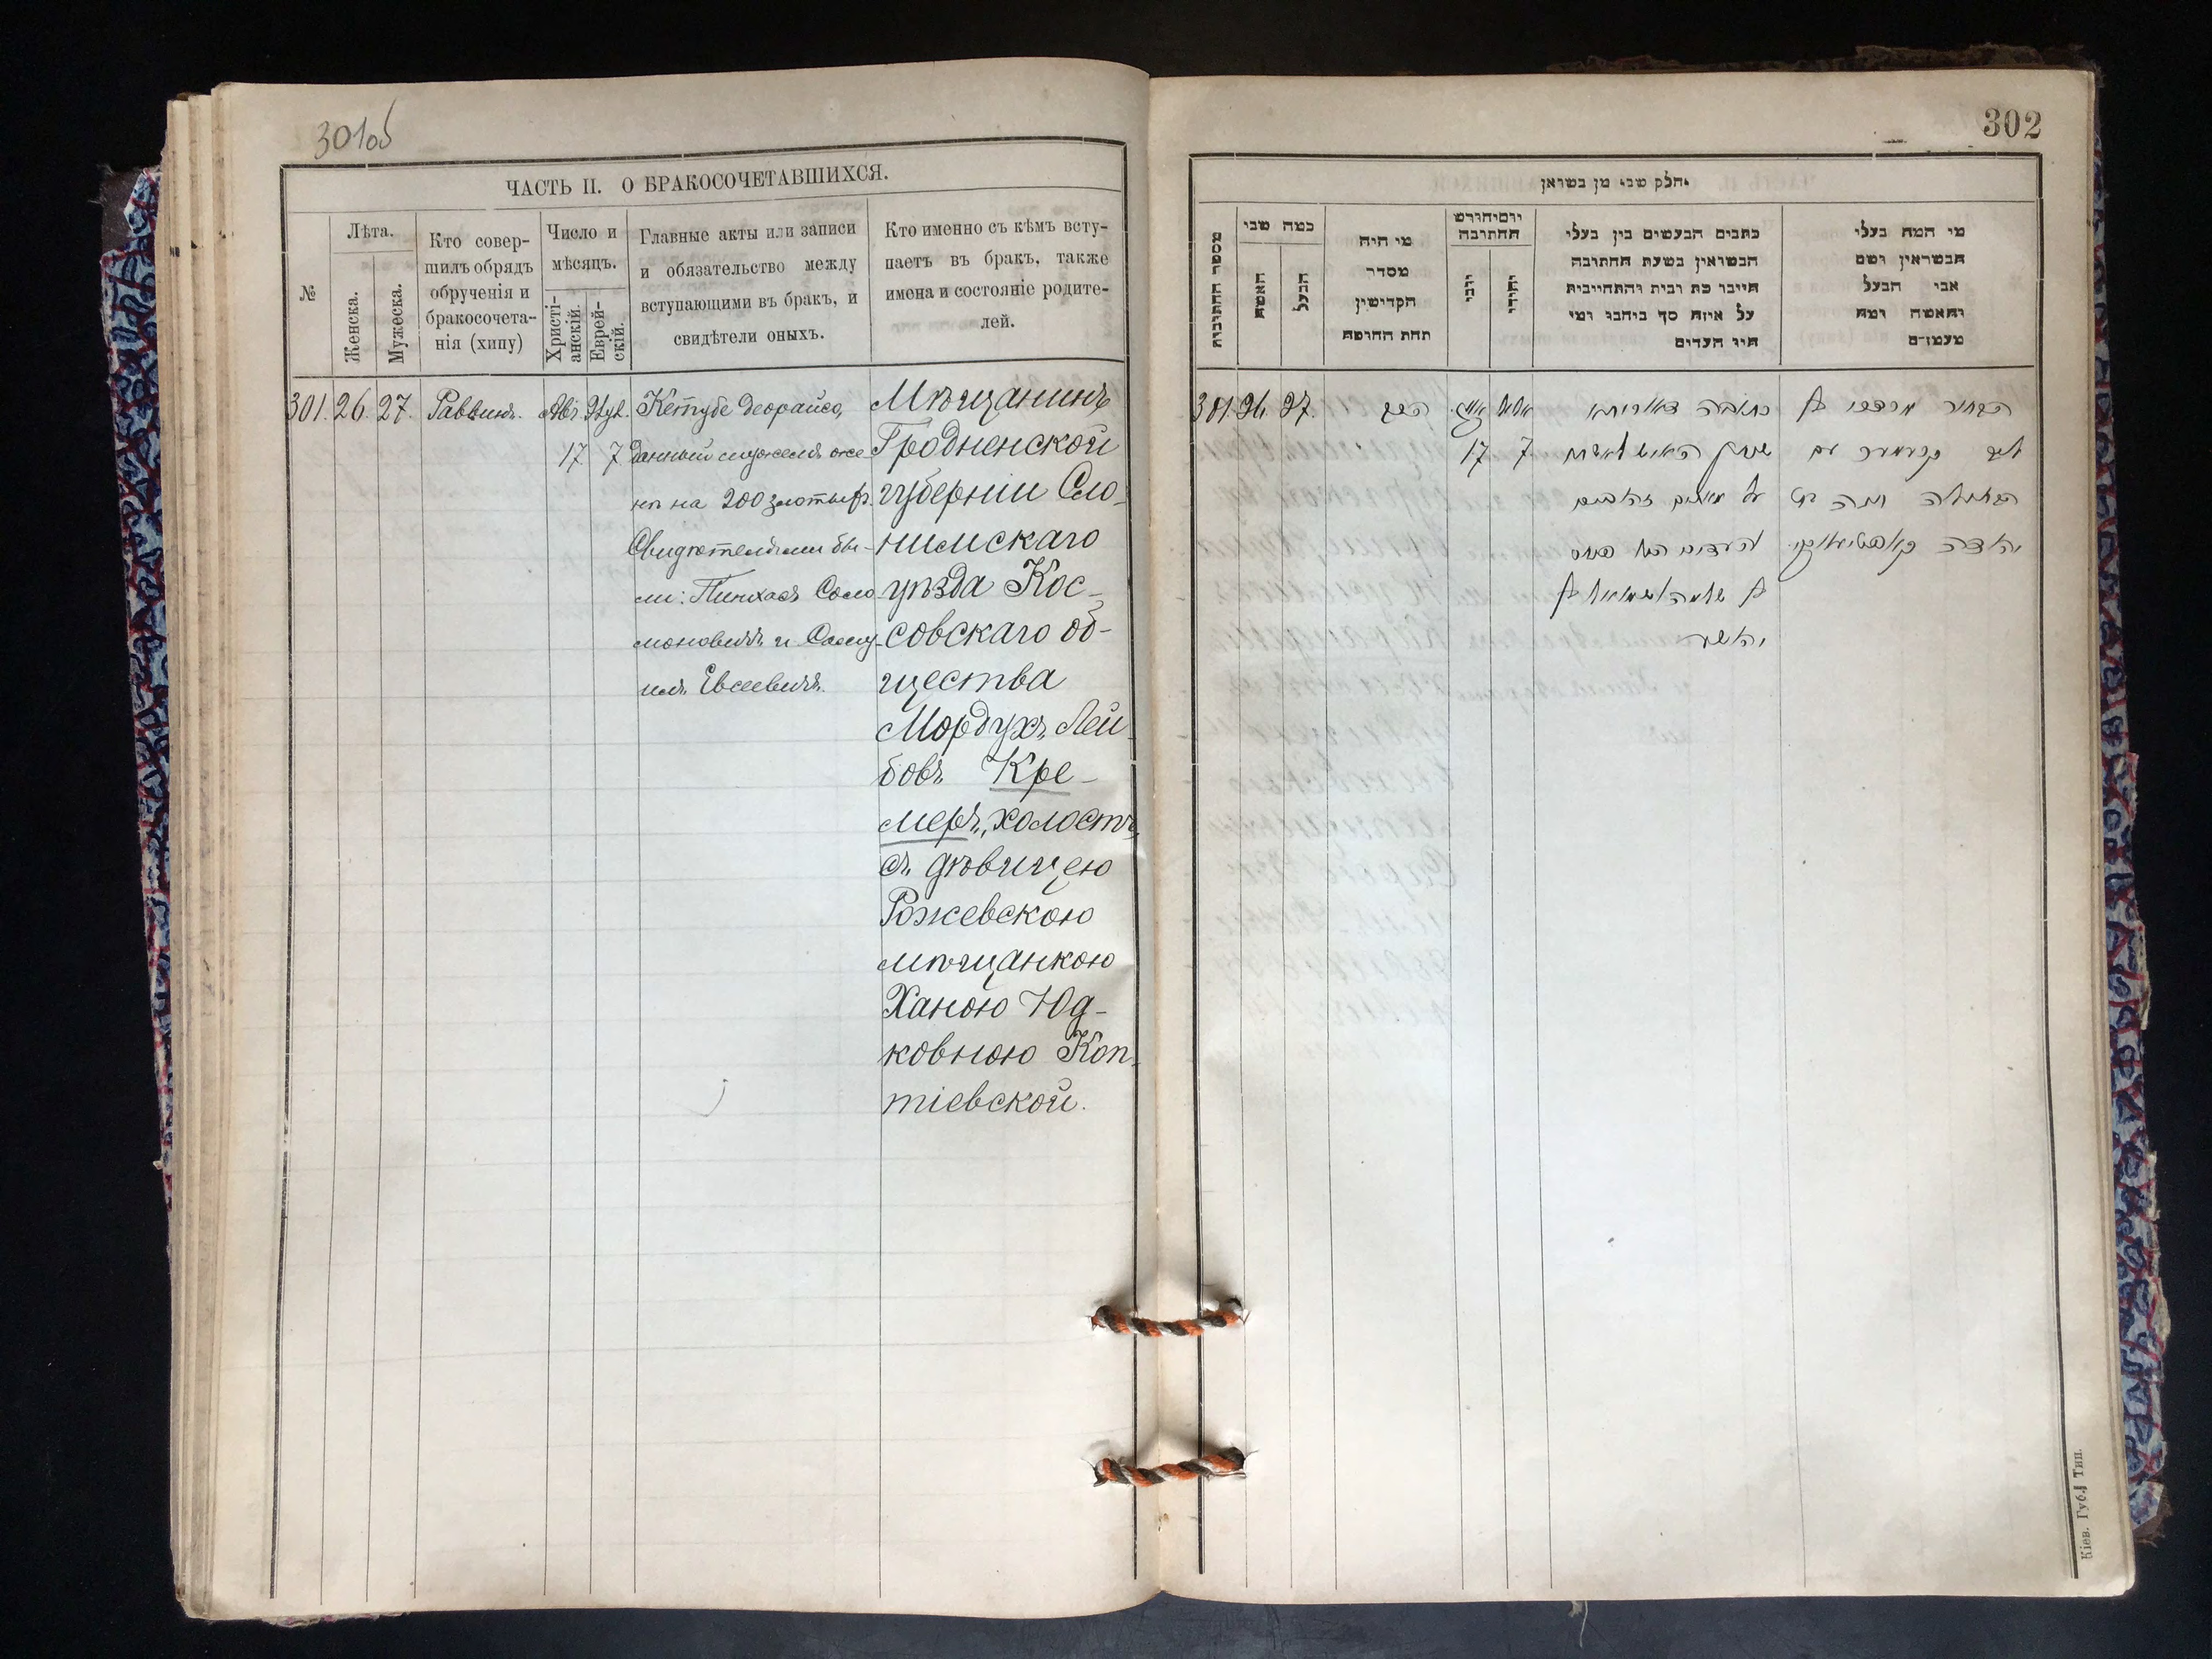 301об
ЧАСТЬ II. О БРАКОСОЧЕТАВШИХСЯ.
№
Лѣта.
Женска.
Мужеска.
Кто совер-
шилъ обрядъ
обрученія и
бракосочета-
нія (хипу)
Число и
мѣсяцъ.
Христі-
анскій.
Еврей-
скій.
Главные акты или записи
и обязательство между
вступающими въ бракъ, и
свидѣтели оныхъ.
Кто именно съ кѣмъ всту-
паетъ въ бракъ, также
имена и состояніе родите-
лей.
301. 26. 27. Раввинъ.
17 7
Кетубе деорайсо,
данный мужемъ же-
нѣ на 200 злотыхъ.
Свидѣтелями бы-
ли: Пинхасъ Соло
моновичъ и Саму-
илъ Евсеевичъ.
Мѣщанинъ
Гродненской
губерніи Сло-
нимскаго
уѣзда Кос-
совскаго об-
щества
Мордухъ Лей-
бовъ Кре-
меръ, холостъ,
съ дѣвицею
Рожевскою
мѣщанкою
Ханою Юд-
ковною Коп-
тіевской.
302
חלק שני מן נשואין
מספר החתונות
כמה שני
האשה
הבעל
מי היה
מסדר
הקדישין
תחת החופה
יום והורש
החתונה
נוצרי
יהודי
כתבים הנעשים בין בעלי
הנשואין בשעת החתונה
היינו כת ובית והתחייבות
על איזה סך ביניהם ומי
היו העדים
מי המה בעלי
הנשואין ושם
אבי הבעל
והאשה ומה
מעמדם
301. 26. 27. הרב
17 7
כתובה דאורייתא
על מאתים זהובים
הבחור מרדכי בן
ליב קרעמער עם
הבתולה חנה בת
יהודה
Кіев. Губ. Тип.